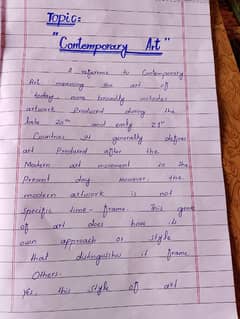 Topic:
"Contemporary Art"
A reference to Contemporary
Art meaning the art of
today, more broadly includes
artwork Produced during the
late 20th and early 21st
Countries. It generally defines
art Produced after the
Modern art movement to the
Present day However, the
modern artwork is not
Specific time-frame. This genre
of art does have is
own approach or style
that distinguishes it frame
Others.
Yes, this style of art